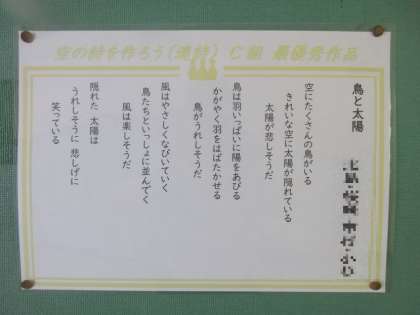 空の詩を作ろう(連詩) C組 最優秀作品
鳥と太陽
空にたくさんの鳥がいる
きれいな空に太陽が隠れている
太陽が悲しそうだ
鳥は羽いっぱいに陽をあびる
かがやく羽をはばたかせる
鳥がうれしそうだ
風はやさしくなびいていく
鳥たちといっしょに並んでく
風は楽しそうだ
隠れた 太陽は
うれしそうに 悲しげに
笑っている